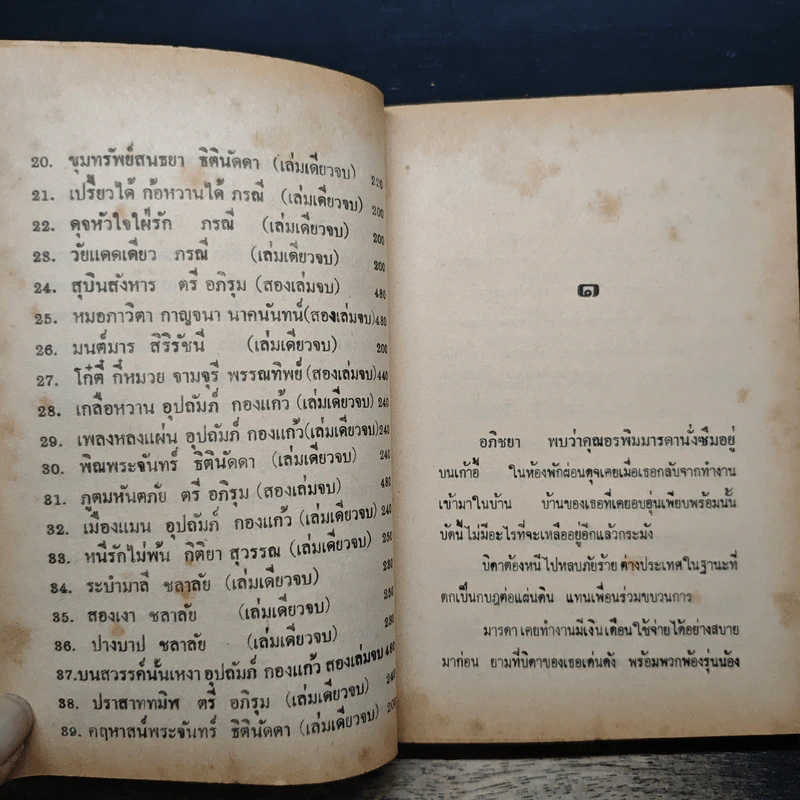 20. ขุมทรัพย์สนธยา ธิตินัดดา (เล่มเดียวจบ) 220
21. เปรี้ยวได้ ก้อหวานได้ ภรณี (เล่มเดียวจบ) 200
22. ดุจหัวใจใฝ่รัก ภรณี (เล่มเดียวจบ) 200
23. วัยแดดเดียว ภรณี (เล่มเดียวจบ) 200
24. สุบินสังหาร ตรี อภิรุม (สองเล่มจบ) 480
25. หมอภาวิตา กาญจนา นาคนันทน์ (สองเล่มจบ) 480
26. มนต์มาร สิริรัชนี (เล่มเดียวจบ) 200
27. โก๋ตี๋ กี๋หมวย จามจุรี พรรณทิพย์ (สองเล่มจบ) 440
28. เกลือหวาน อุปถัมภ์ กองแก้ว (เล่มเดียวจบ) 240
29. เพลงหลงแผ่น อุปถัมภ์ กองแก้ว (เล่มเดียวจบ) 240
30. พิณพระจันทร์ ธิตินัดดา (เล่มเดียวจบ) 240
31. ภูตมหันตภัย ตรี อภิรุม (สองเล่มจบ) 480
32. เมืองแมน อุปถัมภ์ กองแก้ว (เล่มเดียวจบ) 240
33. หนีรักไม่พ้น กิติยา สุวรรณ (เล่มเดียวจบ) 250
34. ระบำมาลี ชลาลัย (เล่มเดียวจบ) 230
35. สองเงา ชลาลัย (เล่มเดียวจบ) 250
36. ปางบาป ชลาลัย (เล่มเดียวจบ) 230
37. บนสวรรค์นั้นเหงา อุปถัมภ์ กองแก้ว สองเล่มจบ 480
38. ปราสาททมิฬ ตรี อภิรุม (เล่มเดียวจบ) 240
39. คฤหาสน์พระจันทร์ ธิตินัดดา (เล่มเดียวจบ) 200
๑
อภิชยา พบว่าคุณอรพิมมารดานั่งซึมอยู่
บนเก้าอี้ ในห้องพักผ่อนดุจเคยเมื่อเธอกลับจากทำงาน
เข้ามาในบ้าน บ้านของเธอที่เคยอบอุ่นเพียบพร้อมนั้น
บัดนี้ไม่มีอะไรที่จะเหลืออยู่อีกแล้วกระมัง
บิดาต้องหนีไปหลบภัยร้าย ต่างประเทศในฐานะที่
ตกเป็นกบฏต่อแผ่นดิน แทนเพื่อนร่วมขบวนการ
มารดาเคยทำงานมีเงินเดือนใช้จ่ายได้อย่างสบาย
มาก่อน ยามที่บิดาของเธอเด่นดัง พร้อมพวกพ้องรุ่นน้อง